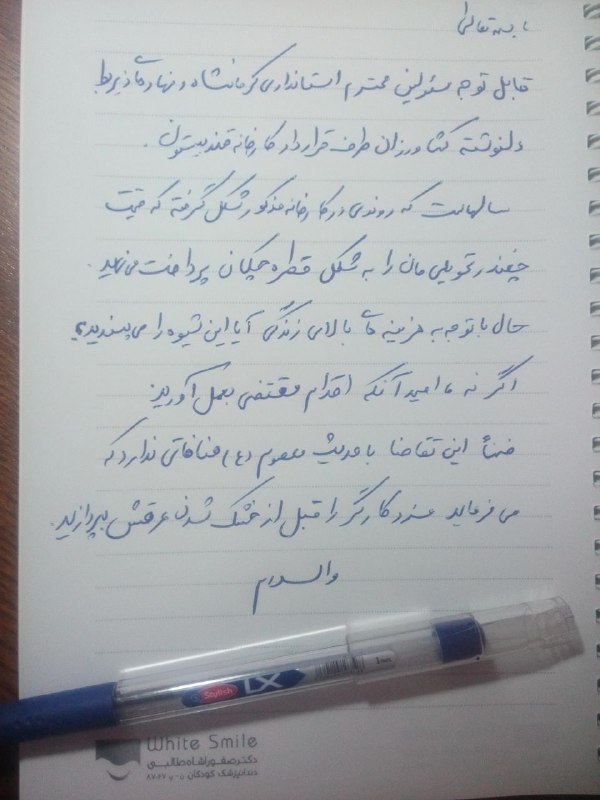 باسمه تعالی
قابل توجه مسئولین محترم استانداری کرمانشاه و نهادهای ذیربط
دلنوشته کشاورزان طرف قرارداد کارخانه قند بیستون.
سالهاست که روندی در کارخانه مذکور شکل گرفته که قیمت
چغندر تحویلی مان را به شکل قطره چکان پرداخت می نماید.
حال با توجه به هزینه های بالای زندگی آیا این شیوه را می پسندید؟
اگر نه، امید آنکه اقدام مقتضی بعمل آورید
ضمناً این تقاضا با حدیث معصوم (ع) منافاتی ندارد که
می فرماید مزد کارگر را قبل از خشک شدن عرقش بپردازید.
والسلام
Stylish LX
1 mm
White Smile
دکتر صفورا شاه طالبی
دندانپزشک کودکان